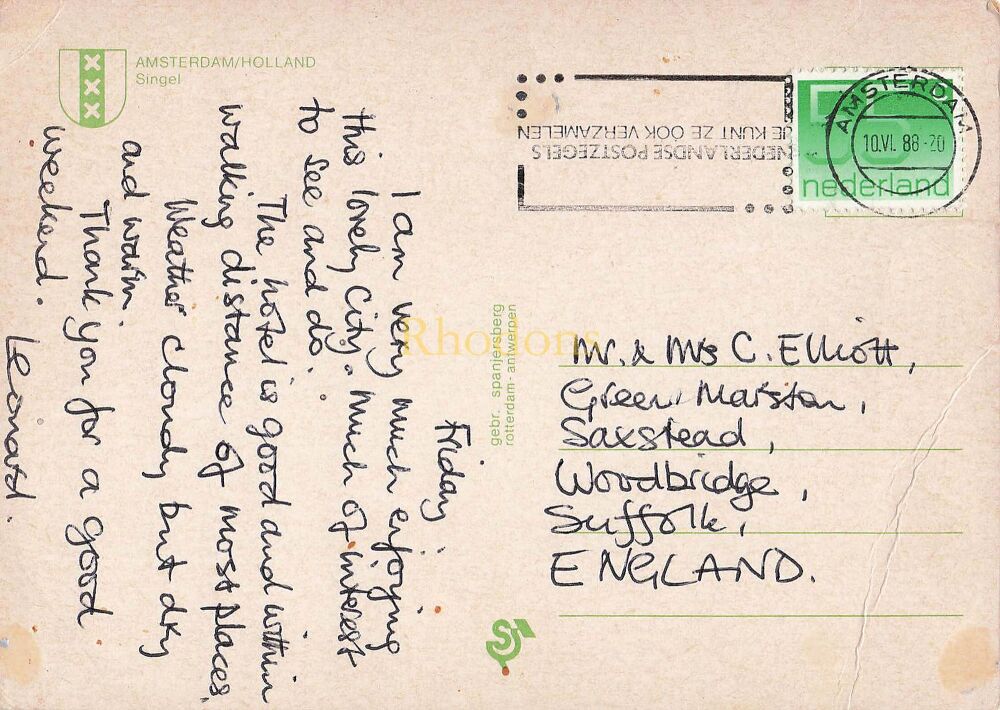 AMSTERDAM/HOLLAND
Singel
Friday.
I am very much enjoying
this lovely City. Much of interest
to see and do.
The hotel is good and within
walking distance of most places.
Weather cloudy but dry
and warm.
Thank you for a good
weekend.
Leonard.
gebr. spanjersberg
rotterdam - antwerpen
NEDERLANDSE POSTZEGELS
JE KUNT ZE OOK VERZAMELEN
AMSTERDAM
10.VI. 88-20
55
nederland
Mr. & Mrs C. Elliott,
Green Marston,
Saxstead,
Woodbridge,
Suffolk,
ENGLAND.
Rhodons